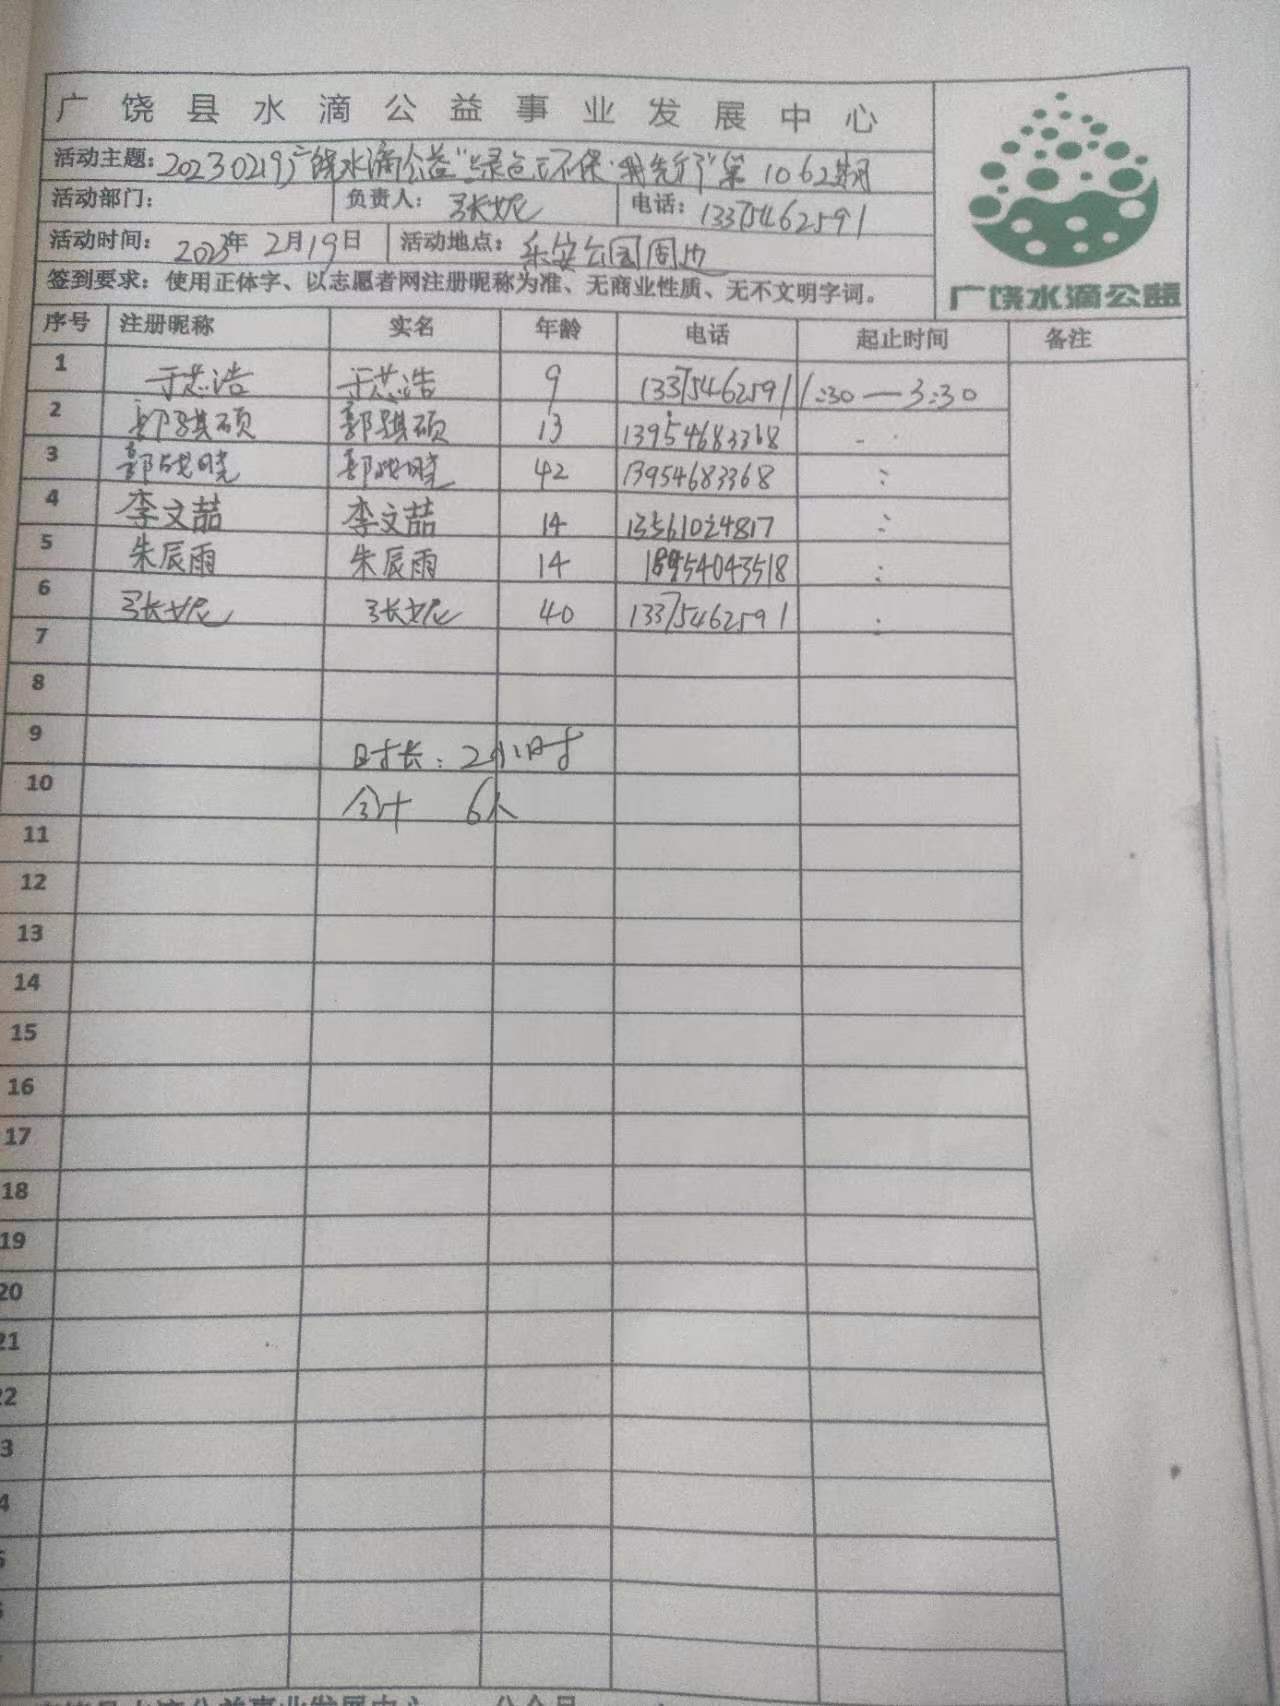 广饶县水滴公益事业发展中心
活动主题：20230219广饶水滴公益"绿色环保·我先行"第1062期
活动部门： 负责人：张妮 电话：13375462591
活动时间：2023年2月19日 活动地点：乐安公园周边
签到要求：使用正体字、以志愿者网注册昵称为准、无商业性质、无不文明字词。
广饶水滴公益
序号 注册昵称 实名 年龄 电话 起止时间 备注
1 于芯浩 于芯浩 9 13375462591 1:30—3:30
2 郭骐硕 郭骐硕 13 13954683368
3 郭晓 郭晓 42 13954683368 :
4 李文喆 李文喆 14 13561024817 :
5 朱辰雨 朱辰雨 14 18954043518 :
6 张妮 张妮 40 13375462591 :
7
8
9 时长：2小时
10 合计 6人
11
12
13
14
15
16
17
18
19
20
21
22
3
4